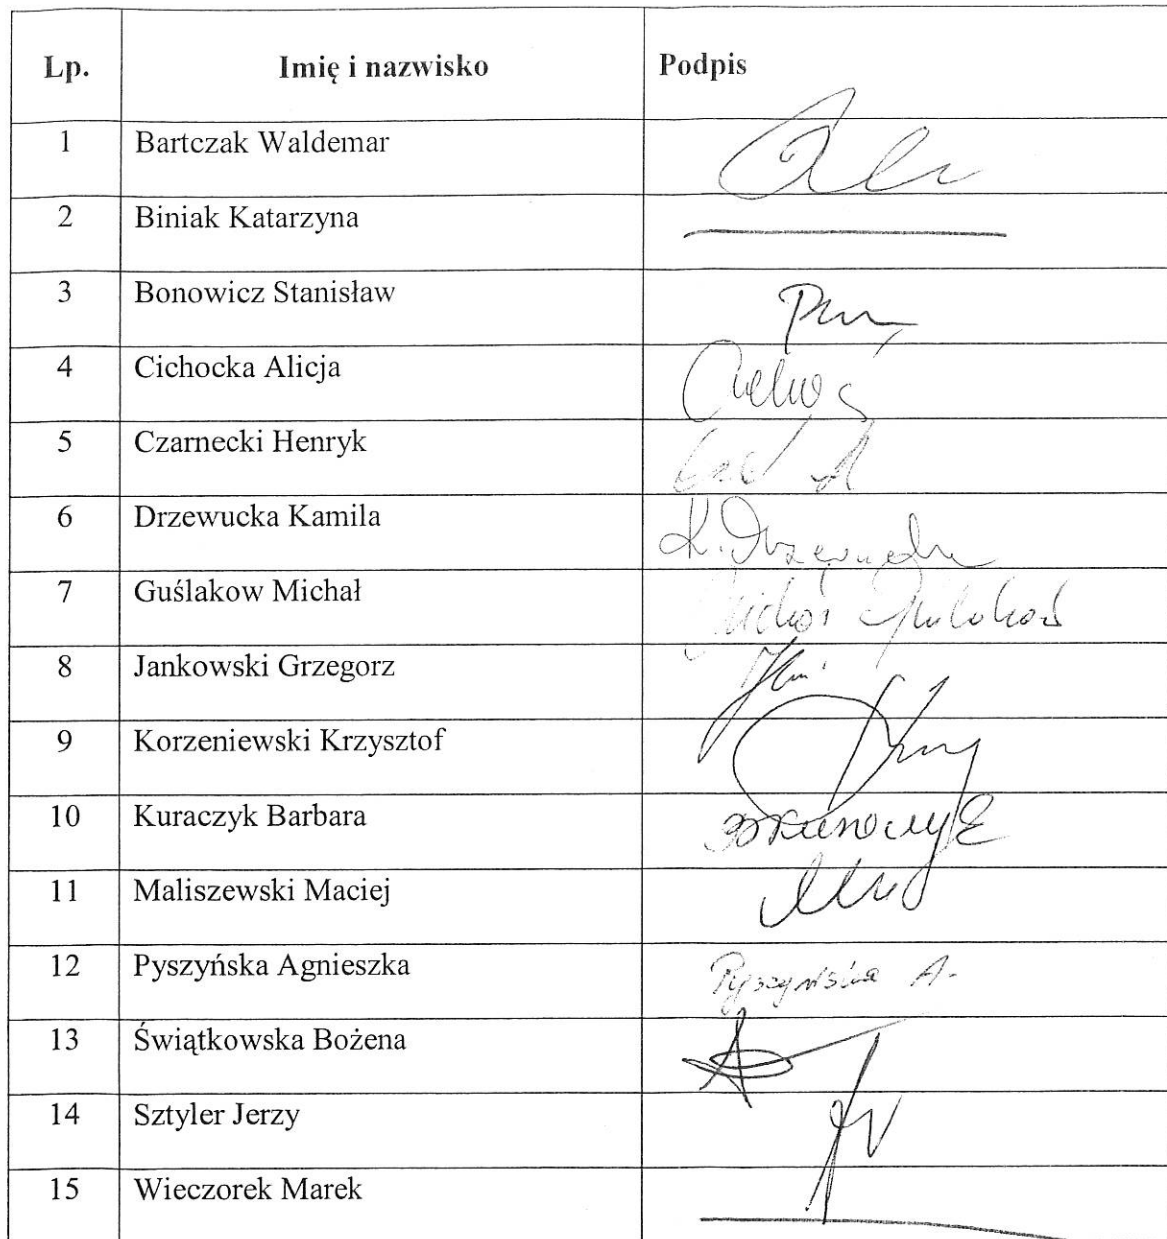 Lp. Imię i nazwisko Podpis
1 Bartczak Waldemar
2 Biniak Katarzyna
3 Bonowicz Stanisław
4 Cichocka Alicja
5 Czarnecki Henryk
6 Drzewucka Kamila K. Drzewucka
7 Guślakow Michał
8 Jankowski Grzegorz
9 Korzeniewski Krzysztof
10 Kuraczyk Barbara
11 Maliszewski Maciej
12 Pyszyńska Agnieszka Pyszyńska A.
13 Świątkowska Bożena
14 Sztyler Jerzy
15 Wieczorek Marek